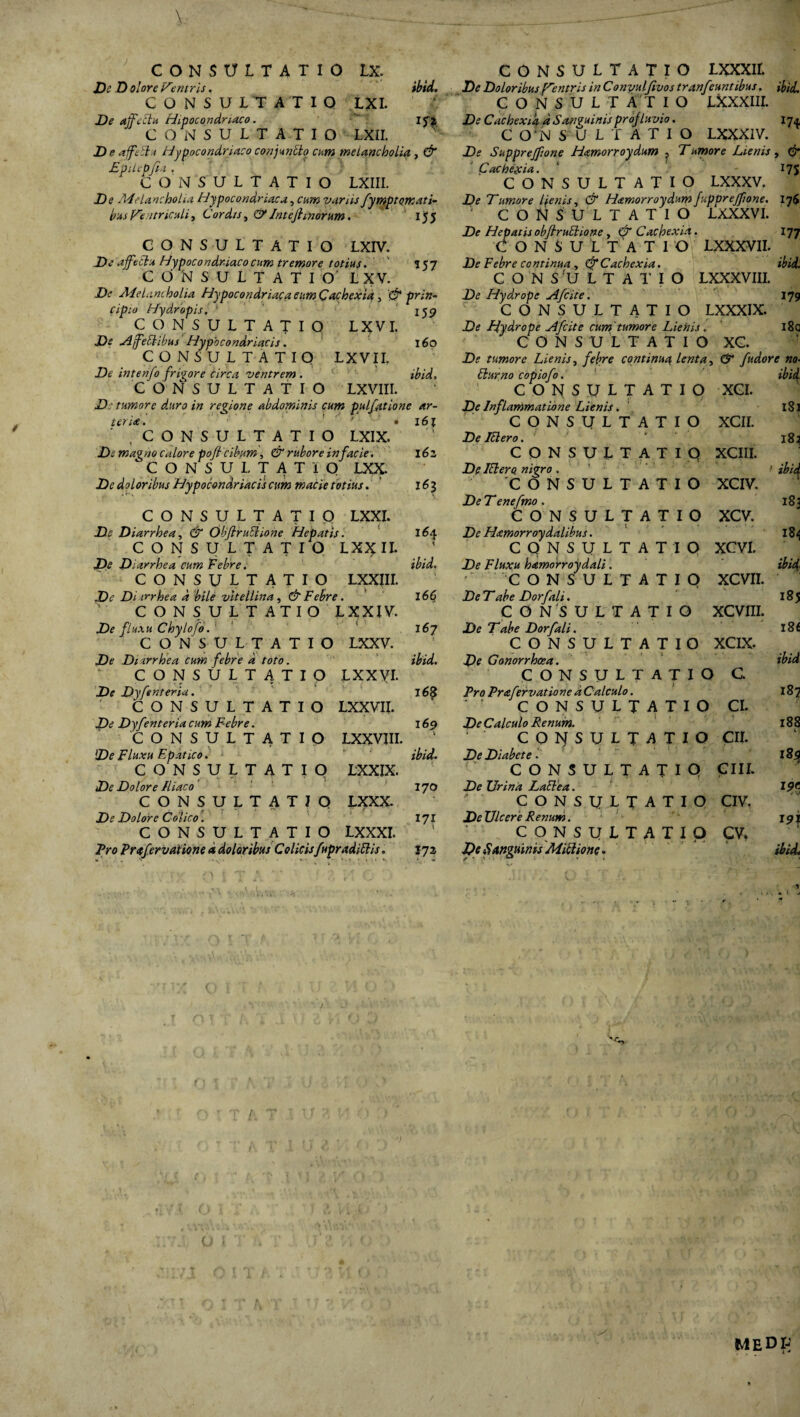 CONSULTATIO LX.
De Dolore Ventris. ibid.
CONSULTATIO LXI.
De affectu Hipocondriaco.
CONSULTATIO LXII.
De affectu Hypocondriaco conjuncto cum melancholia, &
Epilepsia.
CONSULTATIO LXIII.
De Melancholia Hypocondriaca, cum variis symptomati-
bus Ventriculi, Cordis, & Intestinorum. 155
CONSULTATIO LXIV.
De affectu Hypocondriaco cum tremore totius. 157
CONSULTATIO LXV.
De Melancholia Hypocondriaca cum Cachexia, & prin-
cipio Hydropis. 159
CONSULTATIO LXVI.
De Affectibus Hypocondriacis. 160
CONSULTATIO LXVII.
De intenso frigore circa ventrem. ibid.
CONSULTATIO LXVIII.
De tumore duro in regione abdominis cum pulsatione ar-
teriæ. 161
CONSULTATIO LXIX.
De magno calore post cibum, & rubore in facie. 162
CONSULTATIO LXX.
De doloribus Hypocondriacis cum macie totius. 163
CONSULTATIO LXXI.
De Diarrhea, & Obstructione Hepatis. 164
CONSULTATIO LXXII.
De Diarrhea cum Febre. ibid.
CONSULTATIO LXXIII.
De Diarrhea à bile vitellina, & Febre. 166
CONSULTATIO LXXIV.
De fluxu Chyloso. 167
CONSULTATIO LXXV.
De Diarrhea cum febre à toto. ibid.
CONSULTATIO LXXVI.
De Dysenteria. 168
CONSULTATIO LXXVII.
De Dysenteria cum Febre. 169
CONSULTATIO LXXVIII.
De Fluxu Epatico. ibid.
CONSULTATIO LXXIX.
De Dolore Iliaco 170
CONSULTATIO LXXX.
De Dolore Colico. 171
CONSULTATIO LXXXI.
Pro Præservatione à doloribus Colicis supradictis. 172
CONSULTATIO LXXXII.
De Doloribus Ventris in Convulsivos transeuntibus. ibid.
CONSULTATIO LXXXIII.
De Cachexia à Sanguinis profluvio. 174
CONSULTATIO LXXXIV.
De Suppressione Hæmorroydum, Tumore Lienis, &
Cachexia. 175
CONSULTATIO LXXXV.
De Tumore lienis, & Hæmorroydum suppressione. 176
CONSULTATIO LXXXVI.
De Hepatis obstructione, & Cachexia. 177
CONSULTATIO LXXXVII.
De Febre continua, & Cachexia. ibid.
CONSULTATIO LXXXVIII.
De Hydrope Ascite. 179
CONSULTATIO LXXXIX.
De Hydrope Ascite cum tumore Lienis. 180
CONSULTATIO XC.
De tumore Lienis, febre continua lenta, & sudore no-
cturno copioso. ibid
CONSULTATIO XCI.
De Inflammatione Lienis. 181
CONSULTATIO XCII.
De Ictero. 182
CONSULTATIO XCIII.
De Ictero nigro. ibid
CONSULTATIO XCIV.
De Tenesmo. 183
CONSULTATIO XCV.
De Hæmorroydalibus. 184
CONSULTATIO XCVI.
De Fluxu hæmorroydali. ibid
CONSULTATIO XCVII.
De Tabe Dorsali. 185
CONSULTATIO XCVIII.
De Tabe Dorsali. 186
CONSULTATIO XCIX.
De Gonorrhœa. ibid
CONSULTATIO C.
Pro Præservatione à Calculo. 187
CONSULTATIO CI.
De Calculo Renum. 188
CONSULTATIO CII.
De Diabete. 189
CONSULTATIO CIII.
De Urina Lactea. 190
CONSULTATIO CIV.
De Ulcere Renum. 191
CONSULTATIO CV.
De Sanguinis Mictione. ibid.
MEDI